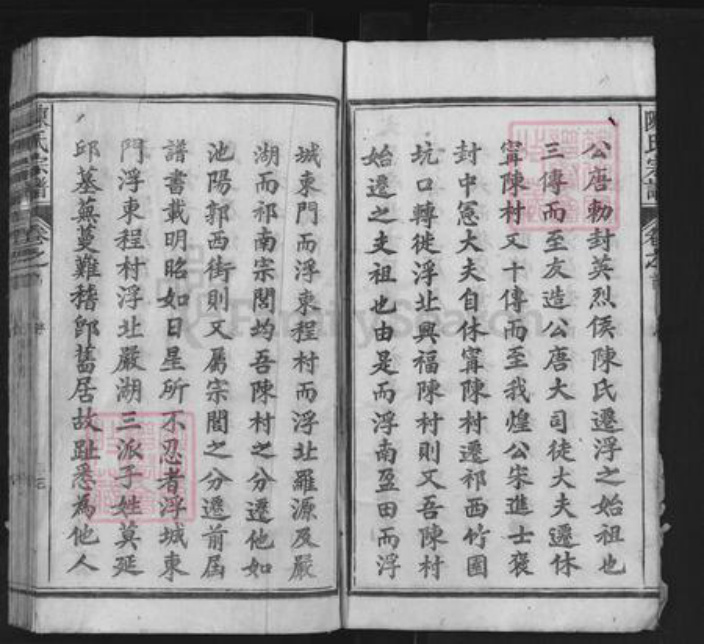 公唐勅封英烈侯陳氏遷浮之始祖也
三傳而至友造公唐大司徒大夫遷休
甯陳村又十傳而至我煌公宋進士褒
封中憲大夫自休甯陳村遷祁西竹園
坑口轉徙浮北興福陳村則又吾陳村
始遷之支祖也由是而浮南盈田而浮
城東門而浮東程村而浮北羅源及嚴
湖而祁南宗閭均吾陳村之分遷他如
池陽郭西街則又屬宗閭之分遷前屆
譜書載明昭如日星所不忍者浮城東
門浮東程村浮北嚴湖三派子姓莫延
邱墓蕪蔓難稽卽舊居故趾悉為他人
陳氏宗譜
卷之
陳氏宗譜
卷之
FamilySearch